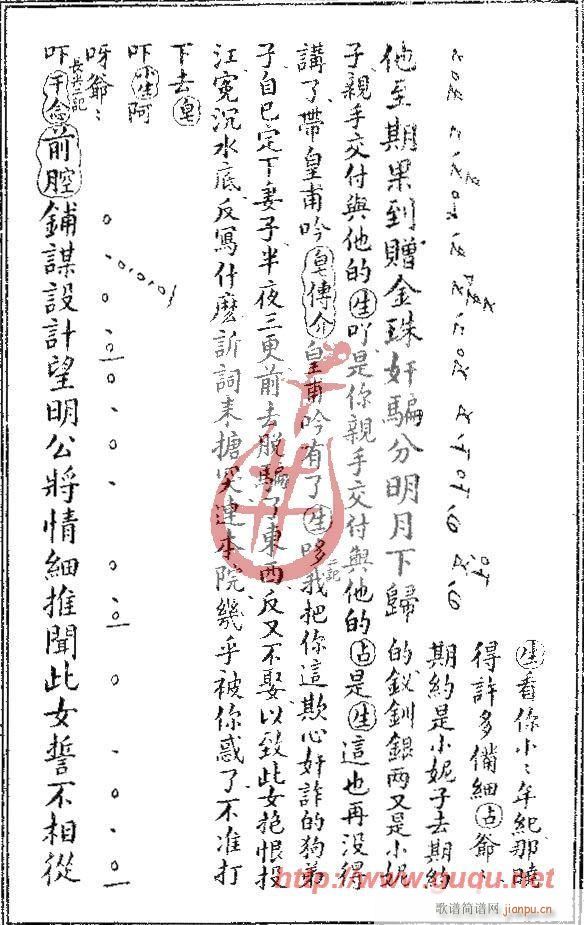 他至期果到贈金珠奸騙分明月下歸
生看你小小年紀那曉
得許多備細占爺爺
期約是小妮子去期約
的釵釧銀兩又是小妮
子親手交付與他的生吖是你親手交付與他的占是生這也再沒得
講了帶皇甫吟皂傳介皇甫吟有了生哆我把你這欺心奸詐的狗弟
子自己定下妻子半夜三更前去脫騙了東西反又不娶以致此女抱恨投
江冤沉水底反寫什麽訴詞來搪突連本院幾乎被你惑了不准打
下去皂
吓小生阿
呀爺爺
吓干念前腔鋪謀設計望明公將情細推聞此女誓不相從
http://www.guqu.net
歌谱简谱网
jianpu.cn